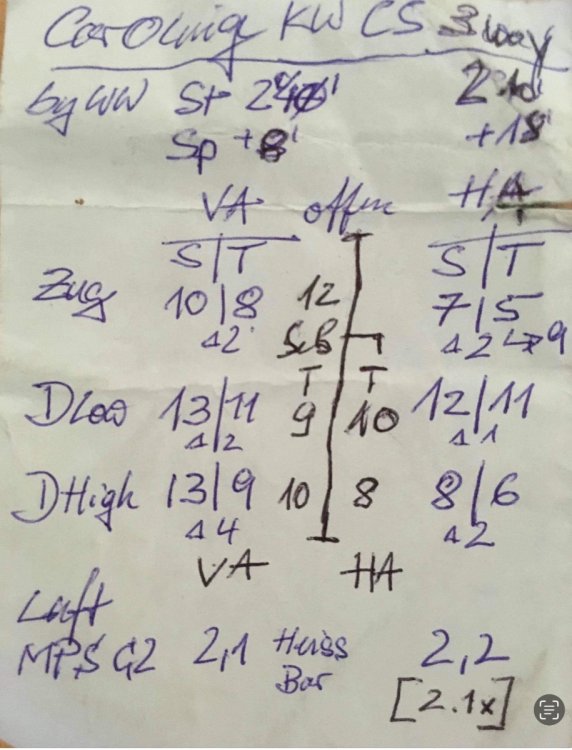 Carolinig KW CS 3way
by WW St 2°40' 2°10'
Sp +8' +18'
VA offen HA
S|T S|T
Zug 10|8 12 7|5
Δ2 Seb Δ2 ↳ 9
T T
DLow 13|11 9 10 12|11
Δ2 Δ1
DHigh 13|9 10 8 8|6
Δ4 Δ2
VA HA
Luft
MPS G2 2,1 Heiss 2,2
Bar [2.1x]